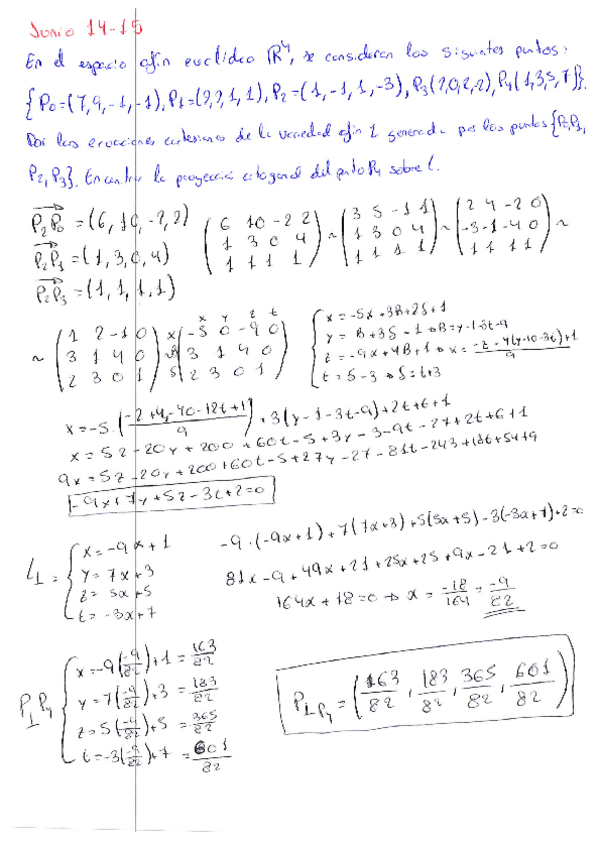 Junio 14-15
En el espacio afín euclídeo ℝ⁴, se consideran los siguientes puntos:
{P₀=(7,9,-1,-1), P₁=(2,2,1,1), P₂=(1,-1,1,-3), P₃(2,0,2,-2), P₄(1,3,5,7)}.
Dar las ecuaciones cartesianas de la variedad afín L generada por los puntos {P₀,P₁,
P₂,P₃}. Encontrar la proyección ortogonal del punto P₄ sobre L.
P₂P₀ = (6,10,-2,2) (6 10 -2 2 / 1 3 0 4 / 1 1 1 1) ~ (3 5 -1 1 / 1 3 0 4 / 1 1 1 1) ~ (2 4 -2 0 / -3 -1 -4 0 / 1 1 1 1) ~
P₂P₁ = (1,3,0,4)
P₂P₃ = (1,1,1,1)
~ (1 2 -1 0 / 3 1 4 0 / 2 3 0 1) (-5 0 -9 0 / 3 1 4 0 / 2 3 0 1)
x = -5α+3β+2δ+1
y = β+3δ-1 → β=y-1-3t-9
z = -9α+4β+1 → α = -z-4(y-10-3t)+1 / 9
t = δ-3 → δ=t+3
x = -5·(-2+4y-40-12t+1 / 9) + 3(y-1-3t-9)+2t+6+1
x = 5z-20y+200+60t-5+3y-3-9t-27+2t+6+1
9x = 5z-20y+200+60t-5+27y-27-81t-243+18t+54+9
-9x+7y+5z-3t+2=0
L⊥ =
x = -9α+1
y = 7α+3
z = 5α+5
t = -3α+7
-9·(-9α+1)+7(7α+3)+5(5α+5)-3(-3α+7)+2=0
81α-9+49α+21+25α+25+9α-21+2=0
164α+18=0 → α = -18/164 = -9/82
P⊥P₄
x = -9(-9/82)+1 = 163/82
y = 7(-9/82)+3 = 183/82
z = 5(-9/82)+5 = 365/82
t = -3(-9/82)+7 = 601/82
P⊥P₄ = (163/82, 183/82, 365/82, 601/82)